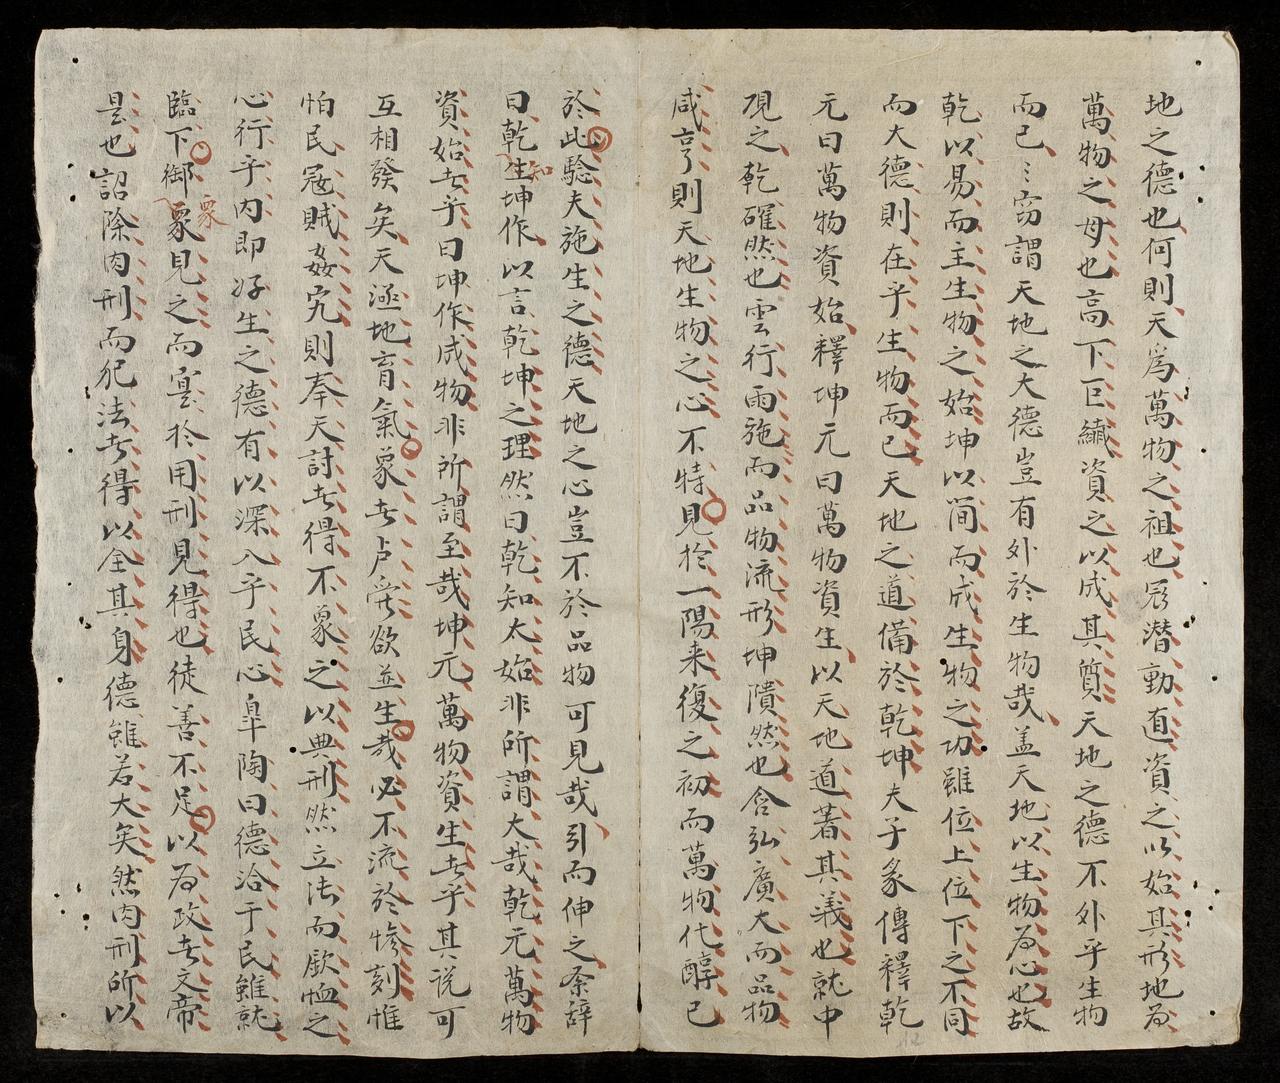 地之德也何則天爲萬物之祖也辰潜動直資之以始其形地为
萬物之母也高下巨纎資之以成其質天地之德不外乎生物
而已〻窃謂天地之大德豈有外於生物哉盖天地以生物为心也故
乾以易而主生物之始坤以簡而成生物之功雖位上位下之不同
而大德則在乎生物而已天地之道備於乾坤夫子彖傳釋乾
元曰萬物資始釋坤元曰萬物資生以天地道著其義也就中
現之乾確然也雲行雨施而品物流形坤隤然也含弘廣大而品物
咸亨則天地生物之心不特見於一陽来復之初而萬物化醇已
於此騐夫施生之德天地之心豈不於品物可見哉引而伸之系辞
曰乾生知坤作以言乾坤之理然曰乾知太始非所謂大哉乾元萬物
資始者乎曰坤作成物非所謂至哉坤元萬物資生者乎其说可
互相發矣天涵地育氣象者卢受欲並生哉必不流於惨刻惟
怕民冦賊姦宄則奉天討者得不象之以典刑然立法而厭恤之
心行乎内即好生之德有以深入乎民心皐陶曰德洽于民雖就
臨下御衆象見之而寔於用刑見得也徒善不足以为政者文帝
是也詔除肉刑而犯法者得以全其身德雖若大矣然肉刑所以